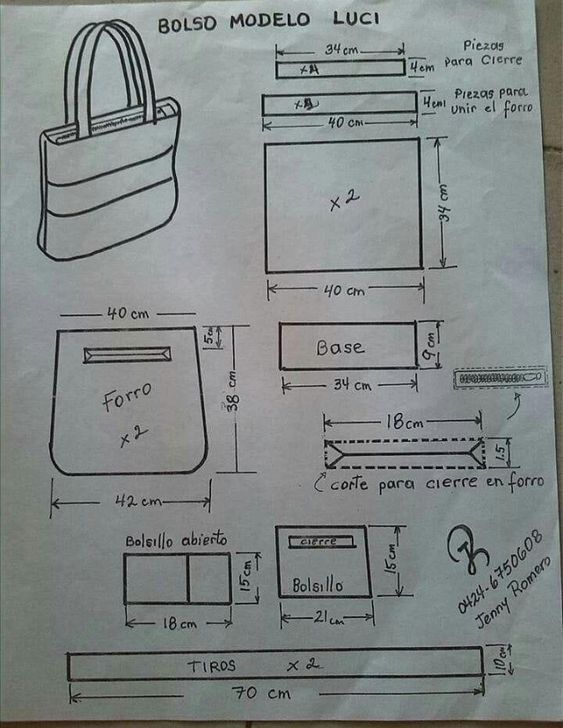 BOLSO MODELO LUCI
34 cm
4 cm
Piezas
para Cierre
4 cm
Piezas para
unir el forro
40 cm
x 2
34 cm
40 cm
40 cm
5 cm
Forro
x 2
38 cm
42 cm
Base
9 cm
34 cm
18 cm
1.5
corte para cierre en forro
Bolsillo abierto
15 cm
18 cm
cierre
Bolsillo
15 cm
21 cm
0424-6750608
Jenny Romero
TIROS x 2
10 cm
70 cm